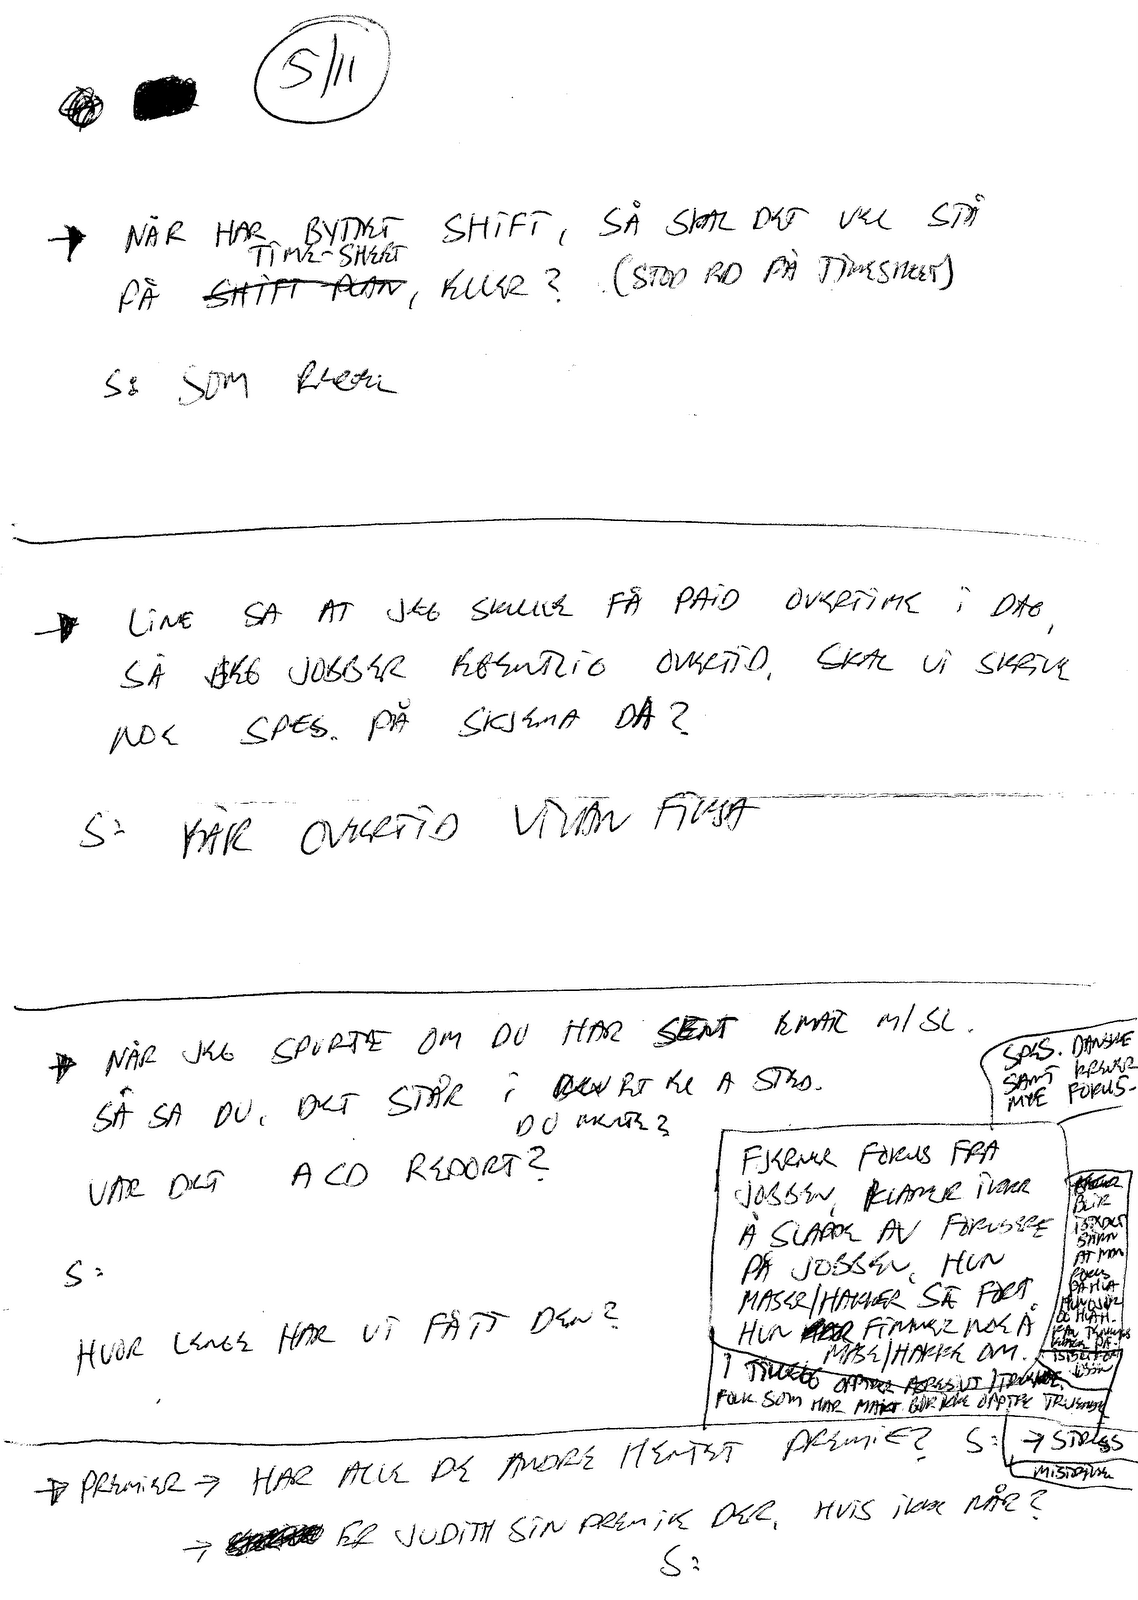 5/11
→ NÅR HAR BYTTET SHIFT, SÅ SKAL DET VEL STÅ
TIME-SHEET
PÅ SHIFT PLAN, ELLER? (STOD RD PÅ TIMESHEET)
S: SOM REGEL
→ LINE SA AT JEG SKULLE FÅ PAID OVERTIME I DAG,
SÅ JEG JOBBER EGENTLIG OVERTID, SKAL VI SKRIVE
NOE SPES. PÅ SKJEMA DA?
S: BÅR OVERTID VIVIAN FIKSA
→ NÅR JEG SPURTE OM DU HAR SENT EMAIL M/SL.
SÅ SA DU, DET STÅR I ET EL A STED.
DU MENTE?
VAR DET ACD REPORT?
S:
HVOR LENGE HAR VI FÅTT DEN?
SPES. DANSKE
SAMT KREVER
MYE FOKUS-
FJERNER FOKUS FRA
JOBBEN, KLARER IKKE
Å SLAPPE AV FOKUSERE
PÅ JOBBEN, HUN
MASER/HAKKER SÅ FORT
HUN FINNER NOE Å
MASE/HAKKE OM.
I TILLEGG OPPTRER AGRESIVT/TRUENDE.
FOLK SOM HAR MAKT BØR IKKE OPPTRE TRUENDE
BLIR
ISTEDET
AT MAN
FOKUS
PÅ HVA
HUN GJØR
→ STRESS
MISTRIVSEL
→ PREMIER → HAR ALLE DE ANDRE HENTET PREMIE? S:
→ ER JUDITH SIN PREMIE DER, HVIS IKKE NÅR?
S: